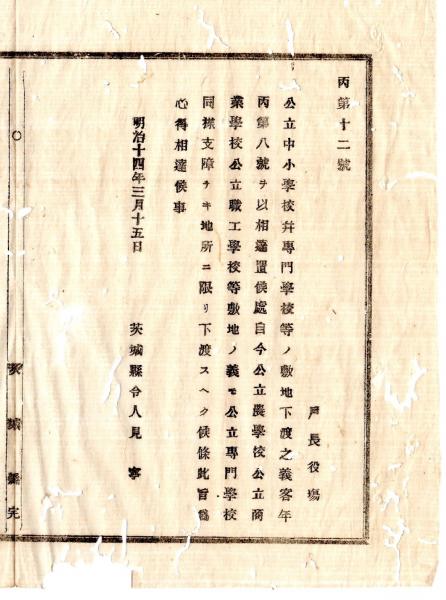 丙第十二號
戸長役塲
公立中小學校幷專門學校等ノ敷地下渡之義客年
丙第八號ヲ以相達置候處自今公立農學校公立商
業學校公立職工學校等敷地ノ義モ公立專門學校
同樣支障ナキ地所ニ限リ下渡スヘク候條此旨爲
心得相達候事
明治十四年三月十五日
茨城縣令人見寧
茨城縣